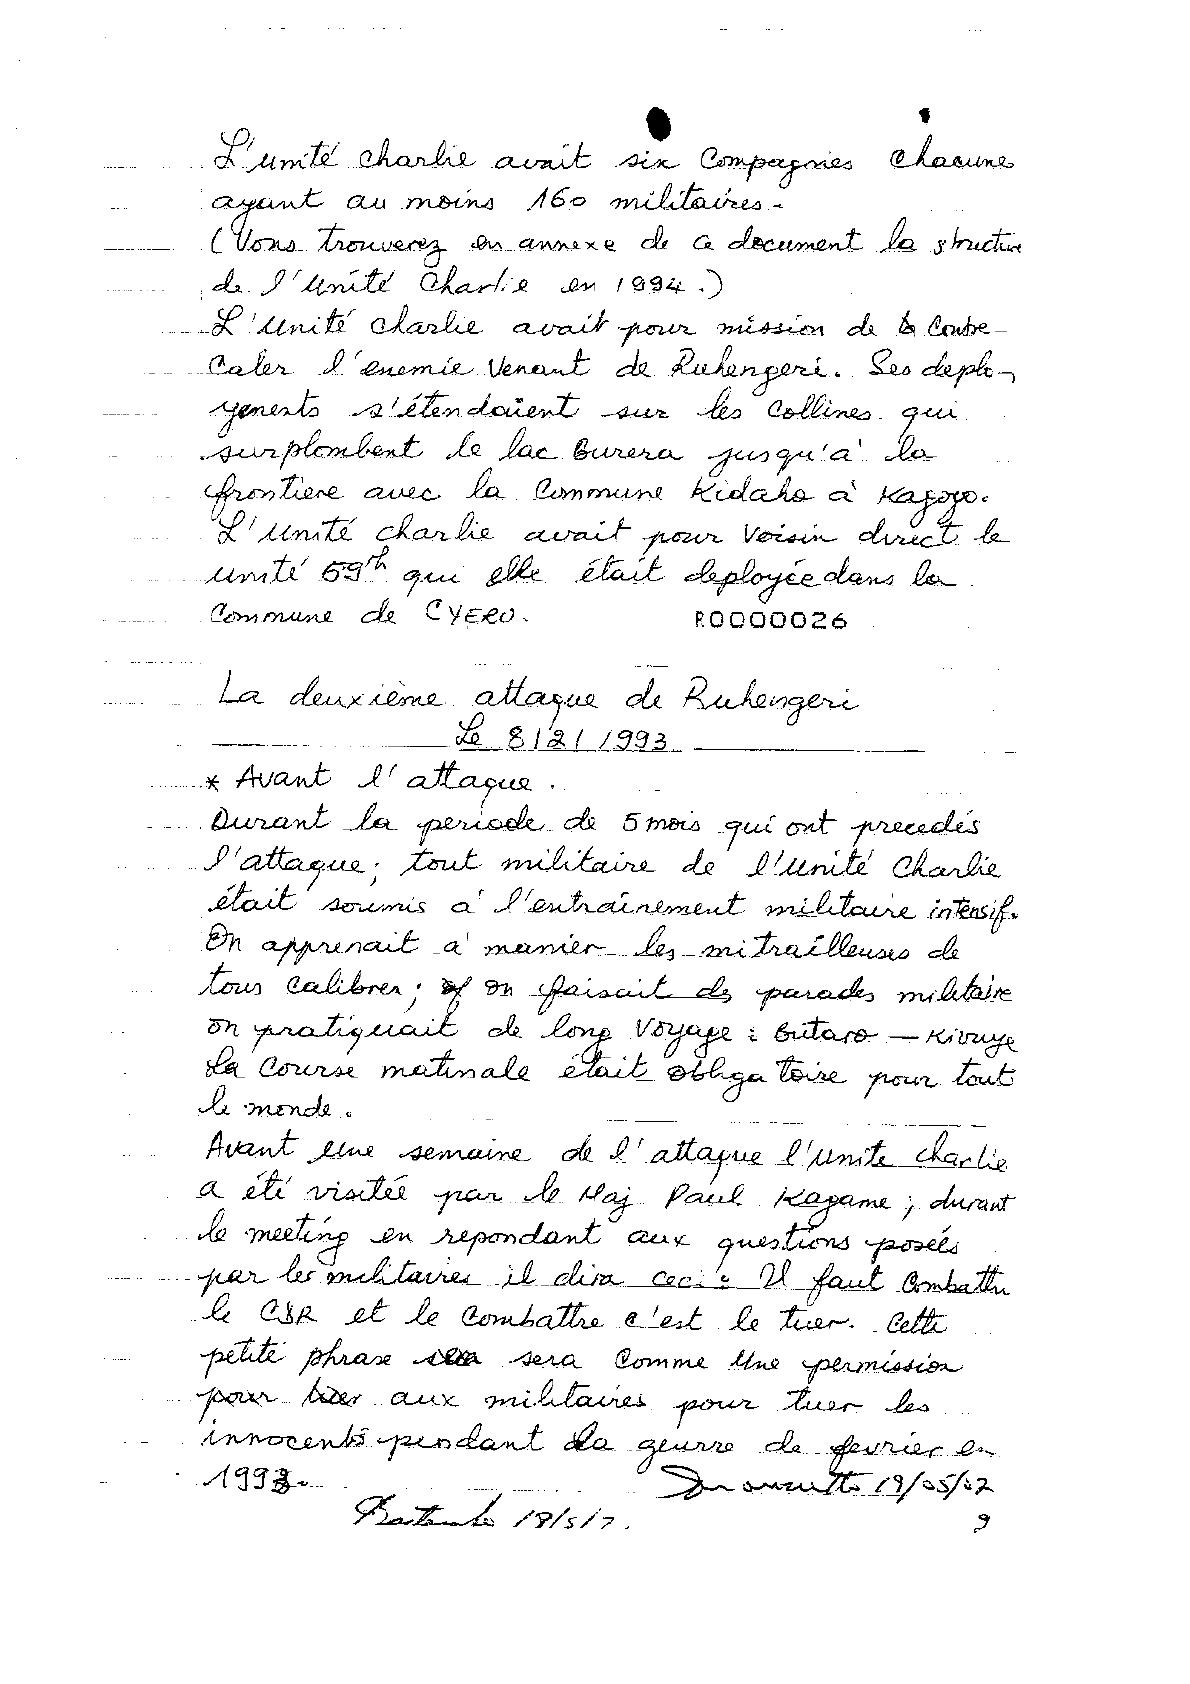 L'unité charlie avait six Compagnies chacune
ayant au moins 160 militaires.
(Vous trouverez en annexe de ce document la structure
de l'Unité Charlie en 1994.)
L'Unité charlie avait pour mission de contre-
caler l'enemie Venant de Ruhengeri. Ses deplo-
yements s'étendaient sur les collines qui
surplombent le lac Burera jusqu'à la
frontiere avec la Commune Kidaho à Kagogo.
L'Unité charlie avait pour voisin direct le
unité 59th qui elle était deployée dans la
Commune de CYERU.
R0000026
La deuxième attaque de Ruhengeri
Le 8/2/1993
* Avant l'attaque.
Durant la periode de 5 mois qui ont precedés
l'attaque; tout militaire de l'Unité Charlie
était soumis à l'entraînement militaire intensif.
On apprenait à manier les mitrailleuses de
tous calibres; on faisait des parades militaire
on pratiquait de long Voyage : Butaro — Kivuye
La Course matinale était obligatoire pour tout
le monde.
Avant une semaine de l'attaque l'unite charlie
a été visitée par le Maj Paul Kagame; durant
le meeting en repondant aux questions posées
par les militaires il dira ceci : Il faut Combattre
le CDR et le Combattre c'est le tuer. Cette
petite phrase sera comme une permission
pour aux militaires pour tuer les
innocents pendant la geurre de fevrier en
1993.
19/05/07
18/5/7.
9